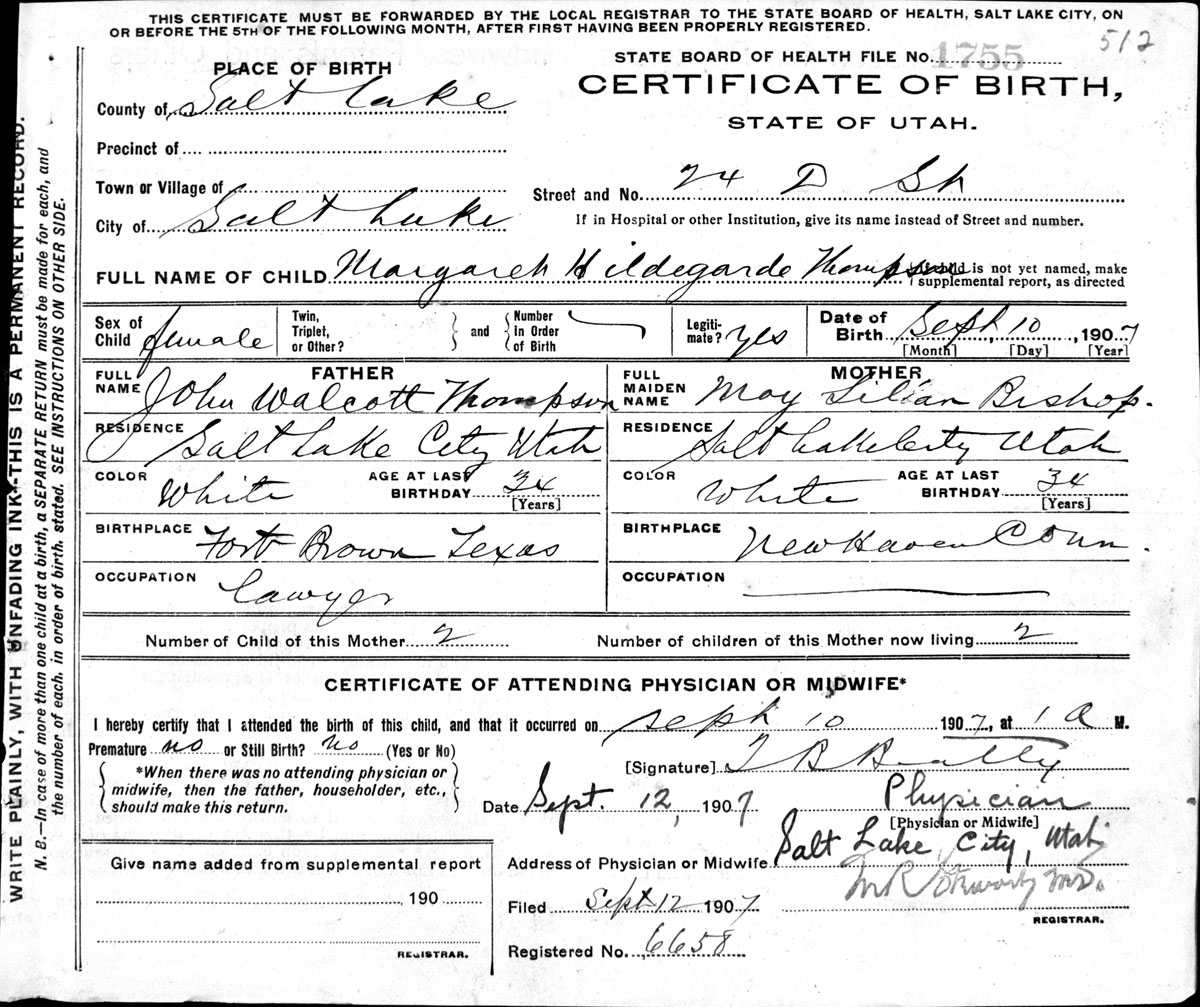 THIS CERTIFICATE MUST BE FORWARDED BY THE LOCAL REGISTRAR TO THE STATE BOARD OF HEALTH, SALT LAKE CITY, ON
OR BEFORE THE 5TH OF THE FOLLOWING MONTH, AFTER FIRST HAVING BEEN PROPERLY REGISTERED.
512
STATE BOARD OF HEALTH FILE No. 1755
CERTIFICATE OF BIRTH,
STATE OF UTAH.
PLACE OF BIRTH
County of Salt Lake
Precinct of
Town or Village of
City of Salt Lake
Street and No. 24 D St
If in Hospital or other Institution, give its name instead of Street and number.
FULL NAME OF CHILD Margaret Hildegarde Thompson
If child is not yet named, make
supplemental report, as directed
Sex of Child female
Twin, Triplet, or Other?
and
Number In Order of Birth
Legitimate? yes
Date of Birth Sept 10, 1907
[Month] [Day] [Year]
FATHER
FULL NAME John Walcott Thompson
RESIDENCE Salt Lake City Utah
COLOR White
AGE AT LAST BIRTHDAY 34
[Years]
BIRTHPLACE Fort Brown Texas
OCCUPATION Lawyer
MOTHER
FULL MAIDEN NAME May Lilian Bishop.
RESIDENCE Salt Lake City Utah
COLOR White
AGE AT LAST BIRTHDAY 34
[Years]
BIRTHPLACE New Haven Conn.
OCCUPATION
Number of Child of this Mother 2
Number of children of this Mother now living 2
CERTIFICATE OF ATTENDING PHYSICIAN OR MIDWIFE*
I hereby certify that I attended the birth of this child, and that it occurred on Sept 10 1907, at 1 A M.
Premature no or Still Birth? No (Yes or No)
*When there was no attending physician or
midwife, then the father, householder, etc.,
should make this return.
[Signature] T B Beatty
Date Sept. 12, 1907
Physician
[Physician or Midwife]
Address of Physician or Midwife Salt Lake City, Utah
Give name added from supplemental report
190
REGISTRAR.
Filed Sept 12 1907
M.D.
REGISTRAR.
Registered No. 6658
WRITE PLAINLY, WITH UNFADING INK-THIS IS A PERMANENT RECORD.
N. B.—In case of more than one child at a birth, a SEPARATE RETURN must be made for each, and
the number of each, in order of birth, stated. SEE INSTRUCTIONS ON OTHER SIDE.